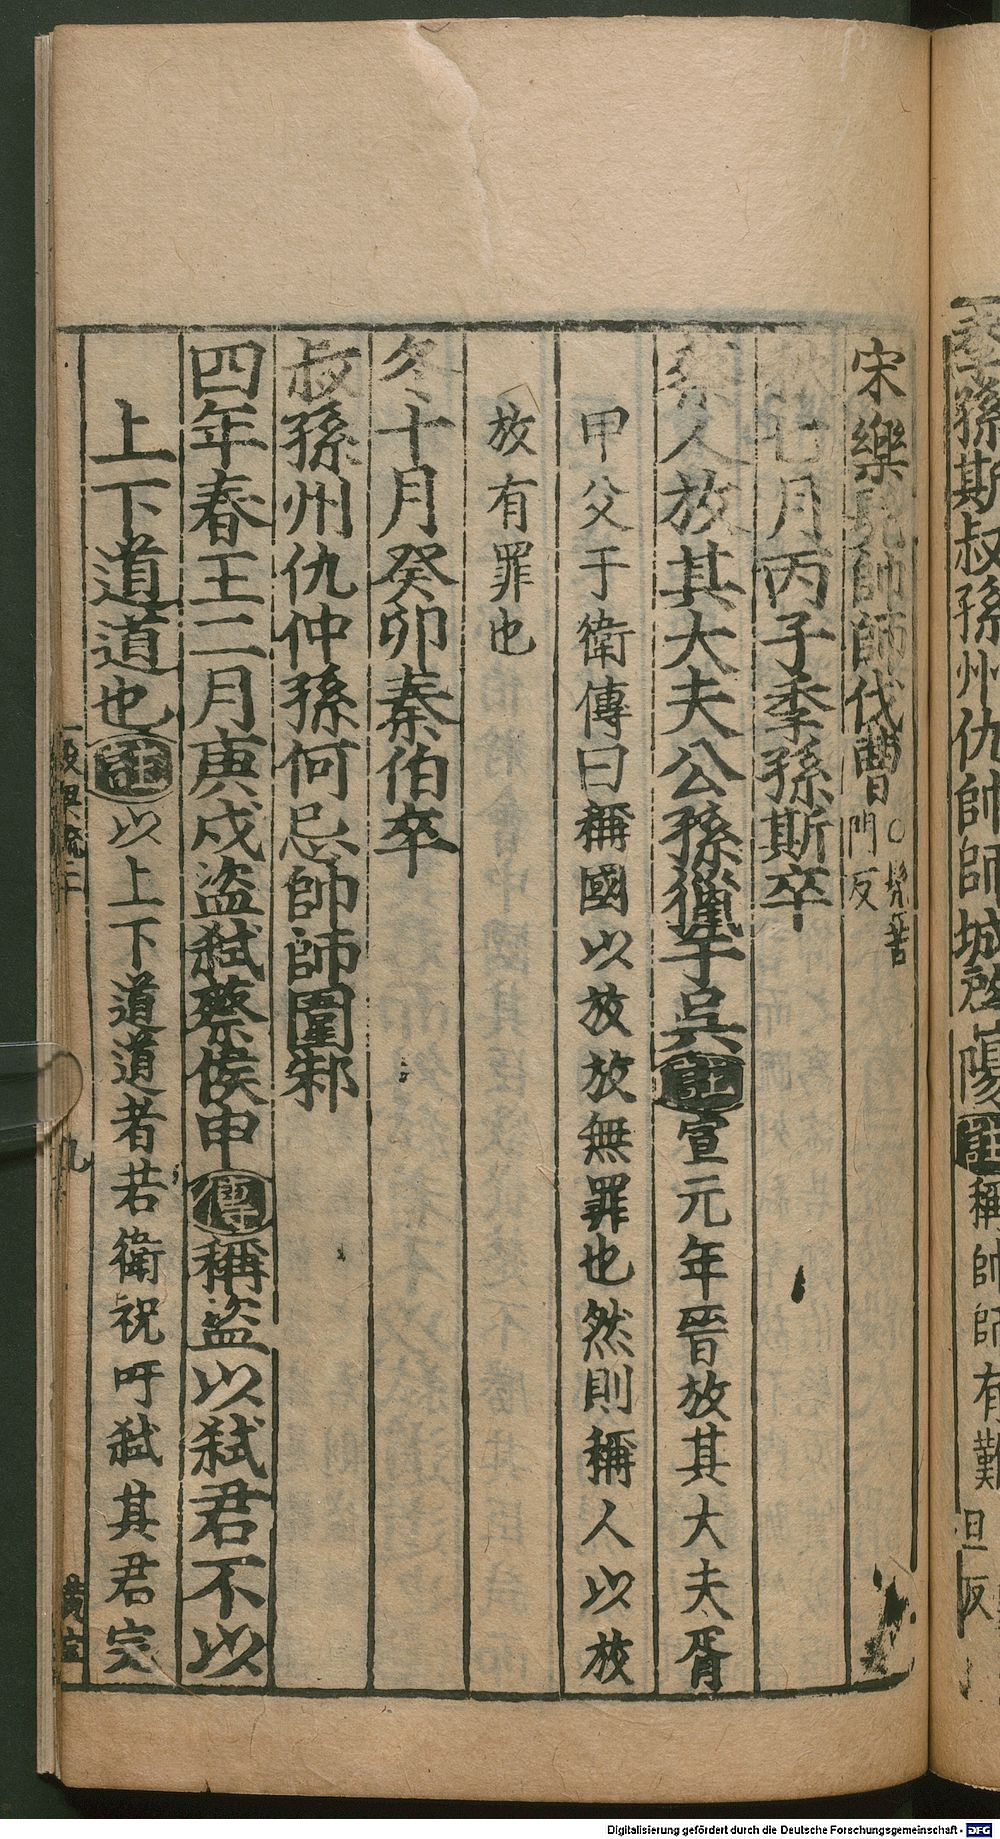 季孫斯叔孫州仇帥師城啓陽註稱帥師有難
宋樂髡帥師伐曹○髡苦門反
秋七月丙子季孫斯卒
蔡人放其大夫公孫獵于吳註宣元年晉放其大夫胥
甲父于衛傳曰稱國以放放無罪也然則稱人以放
放有罪也
冬十月癸卯秦伯卒
叔孫州仇仲孫何忌帥師圍邾
四年春王二月庚戌盜弒蔡侯申傳稱盜以弒君不以
上下道道也註以上下道道者若衛祝吁弒其君完
九
Digitalisierung gefördert durch die Deutsche Forschungsgemeinschaft - DFG